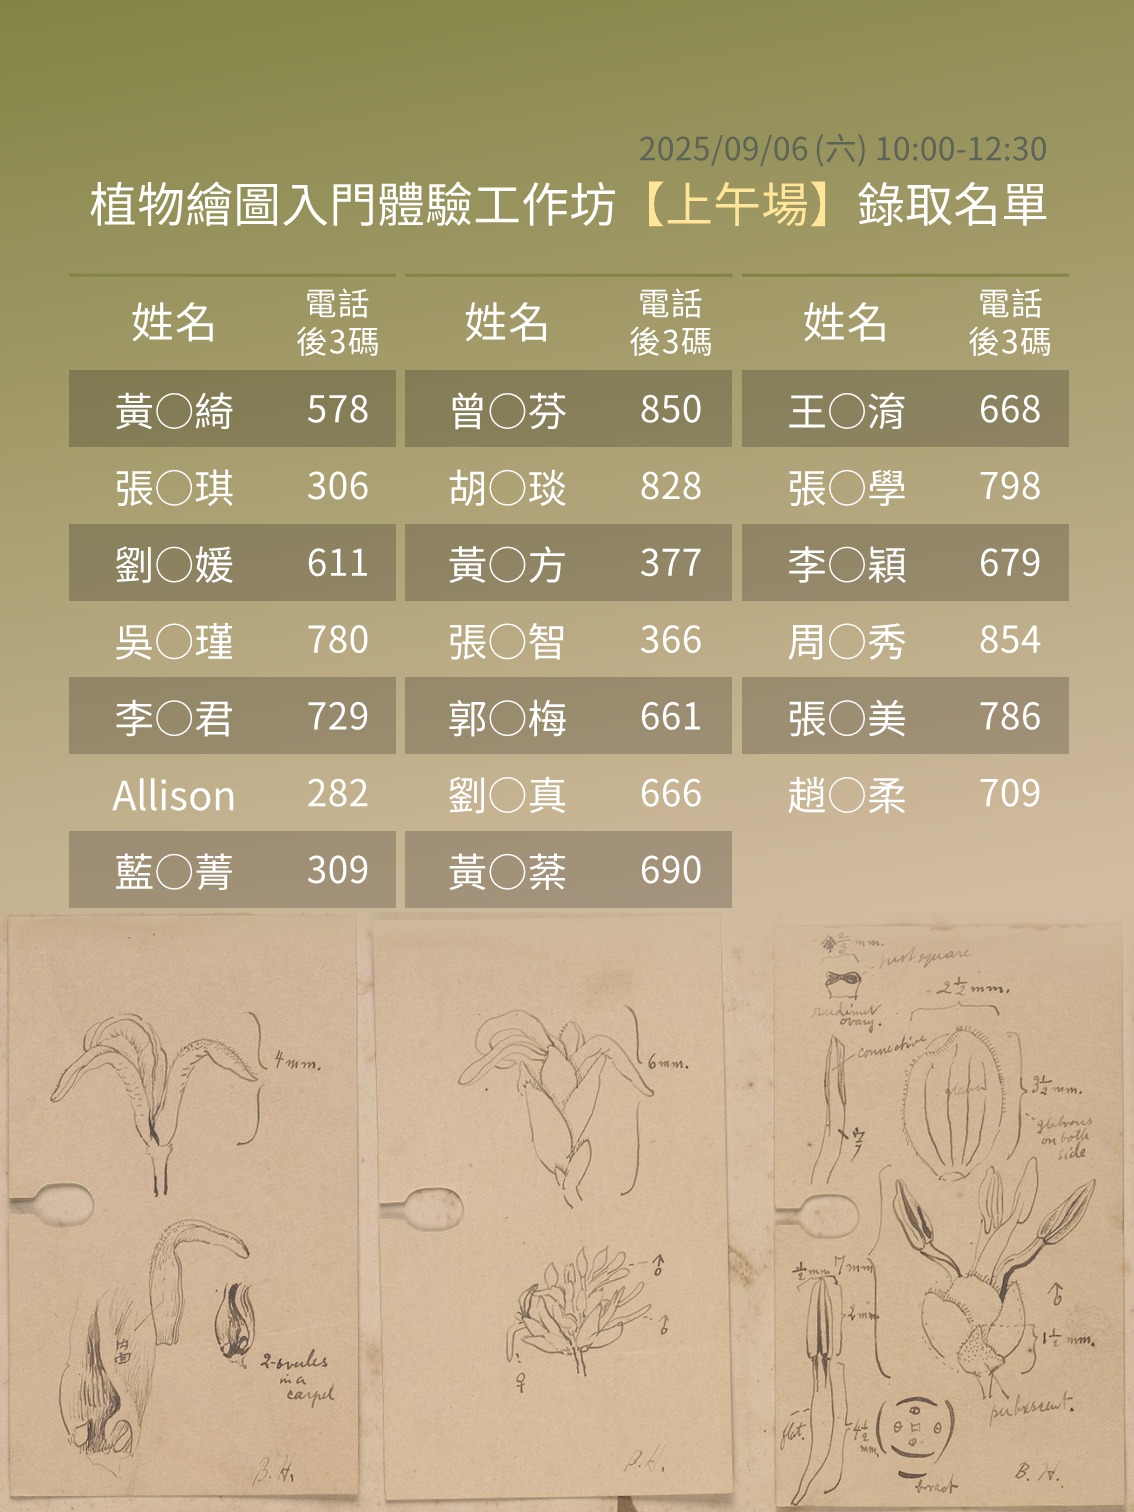 2025/09/06 (六) 10:00-12:30
植物繪圖入門體驗工作坊【上午場】錄取名單
姓名 電話後3碼 姓名 電話後3碼 姓名 電話後3碼
黃○綺 578 曾○芬 850 王○淯 668
張○琪 306 胡○琰 828 張○學 798
劉○媛 611 黃○方 377 李○穎 679
吳○瑾 780 張○智 366 周○秀 854
李○君 729 郭○梅 661 張○美 786
Allison 282 劉○真 666 趙○柔 709
藍○菁 309 黃○棻 690
4 mm.
内面
2-ovules
in a
carpel
B. H.
6 mm.
♂
♂
♀
B. H.
mm.
rudiment
ovary.
2 1/2 mm.
connective
3 1/2 mm.
glabrous
on both
side
1/2 mm
7 mm
2 mm
♂
1 1/2 mm.
pubescent.
flat.
4 1/2
mm.
bract
B. H.